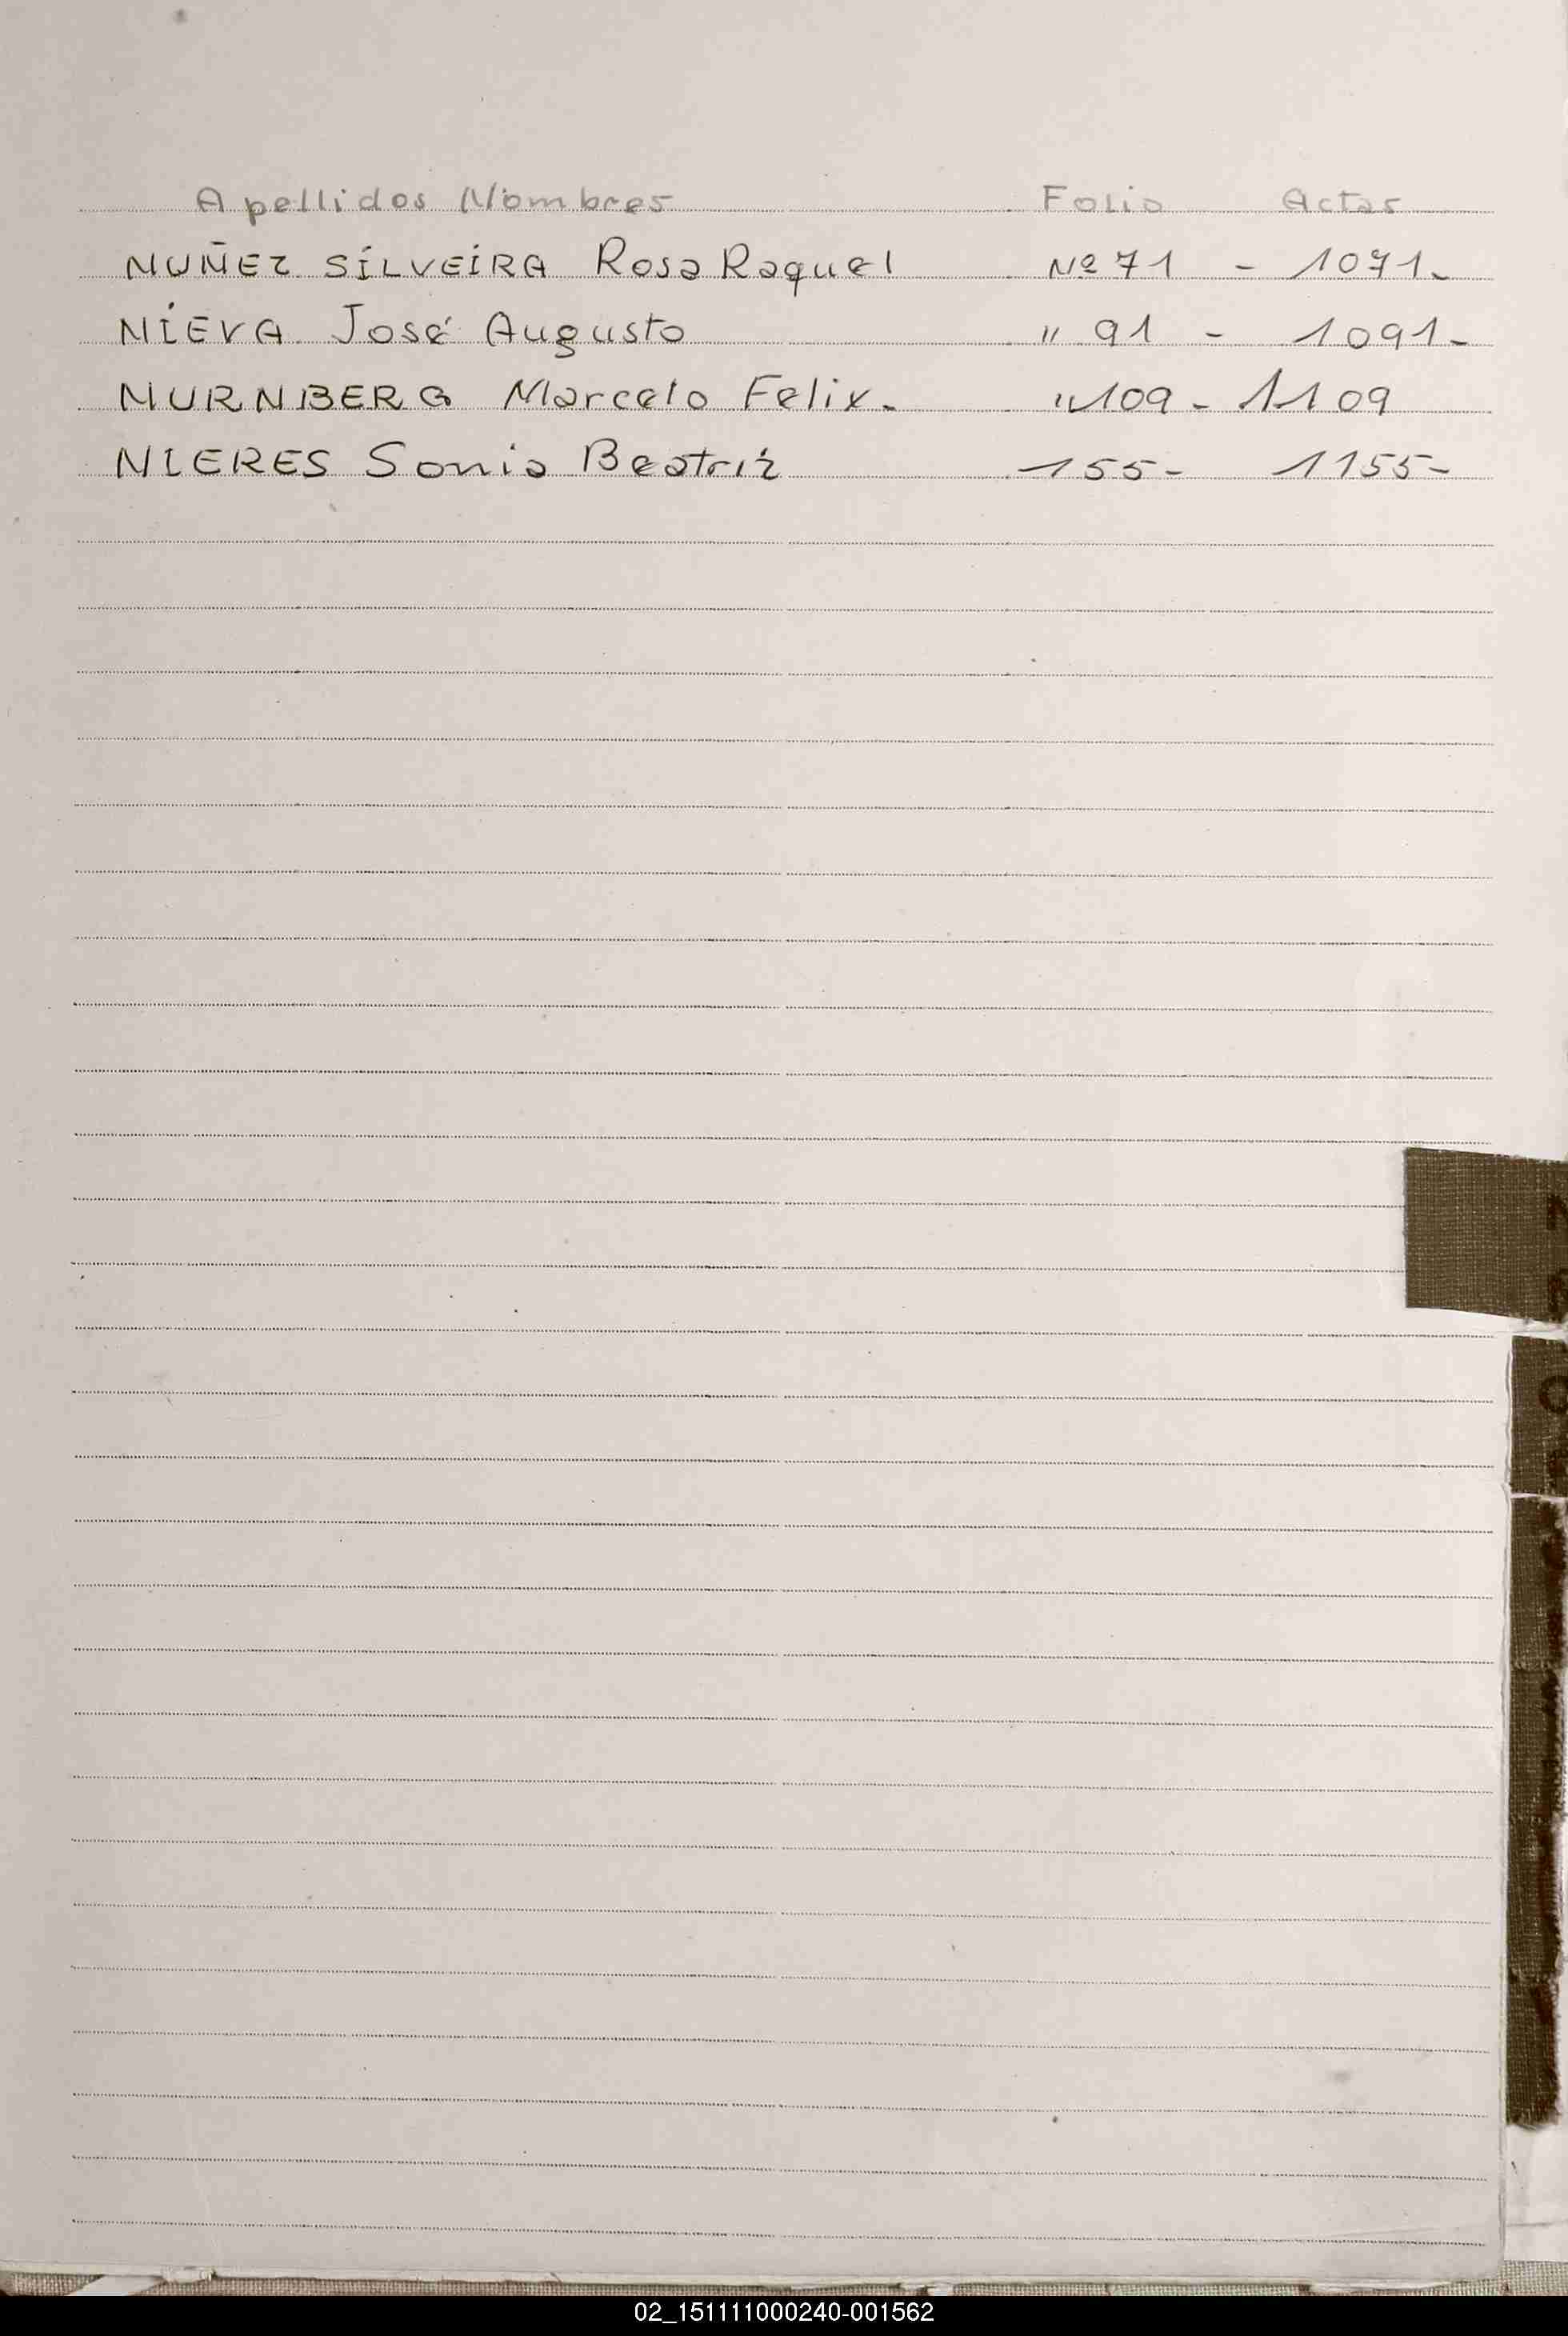 Apellidos Nombres Folio Actas
NUÑEZ SILVEIRA Rosa Raquel Nº 71 - 1071-
NIEVA José Augusto " 91 - 1091-
NURNBERG Marcelo Felix. " 109 - 1109
NIERES Sonia Beatriz 155- 1155-
N
O
02_151111000240-001562